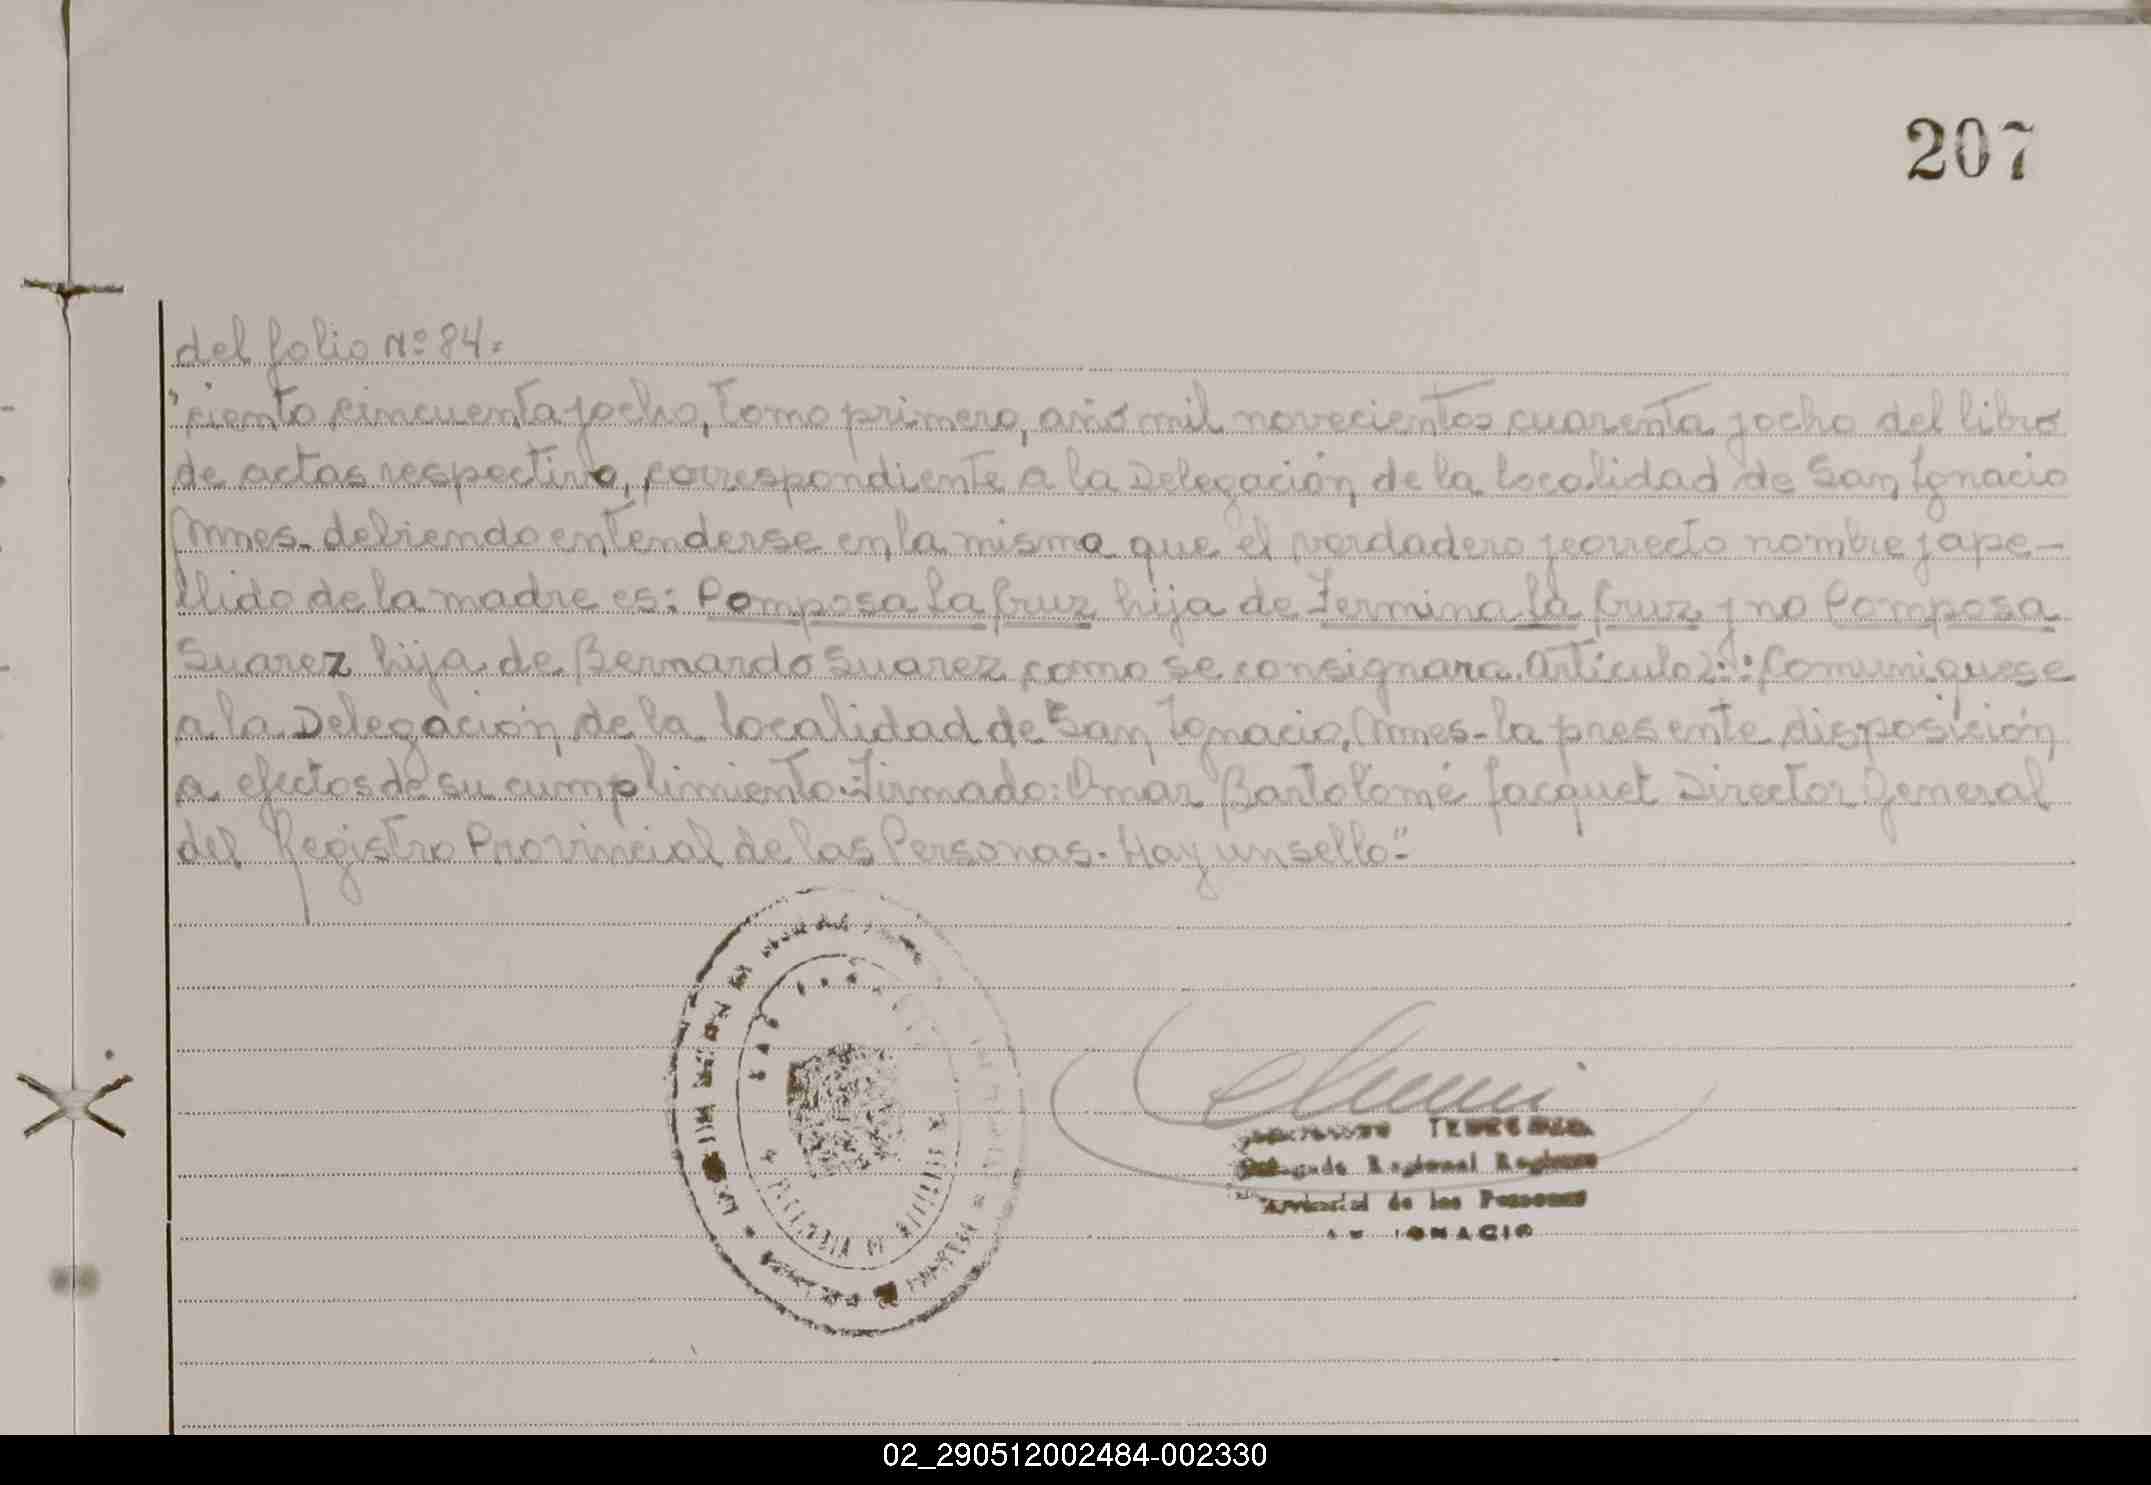 207
del folio Nº 84.
"ciento cincuenta y ocho, Tomo primero, año mil novecientos cuarenta y ocho del libro
de actas respectivo, correspondiente a la Delegación de la localidad de San Ignacio
Mnes. debiendo entenderse en la misma que el verdadero y correcto nombre y ape-
llido de la madre es: Pomposa La Cruz hija de Fermina La Cruz y no Pomposa
Suarez hija de Bernardo Suarez como se consignara. Artículo 2º: Comuniquese
a la Delegación de la localidad de San Ignacio, Mnes- la presente disposición
a efectos de su cumplimiento. Firmado: Omar Bartolomé Jacquet Director General
del Registro Provincial de las Personas. Hay un sello."
Delegado Regional Registro
Provincial de las Personas
IGNACIO
02_290512002484-002330